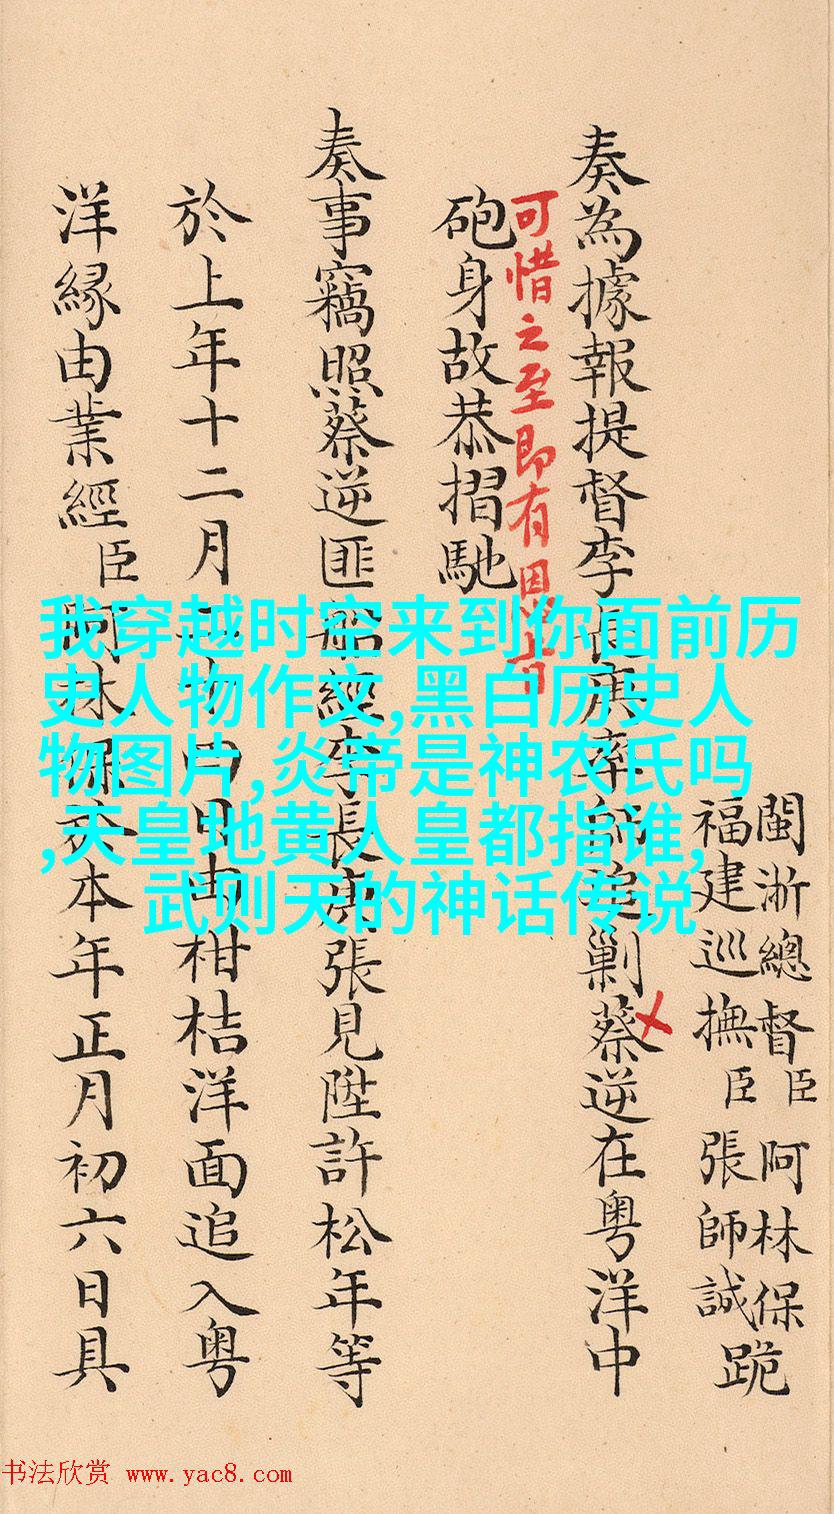 閩浙總督臣阿林保
福建巡撫臣張師誠
跪
奏為據報提督李長庚率師追剿蔡逆在粤洋中
可惜之至即有恩旨
砲身故恭摺馳
奏事竊照蔡逆匪船經李長庚張見陞許松年等
於上年十二月柑桔洋面追入粤
洋縁由業經臣阿林保於本年正月初六日具
我穿越时空来到你面前历
史人物作文,黑白历史人
物图片,炎帝是神农氏吗
,天皇地黄人皇都指谁,
武则天的神话传说
书法欣赏 www.yac8.com